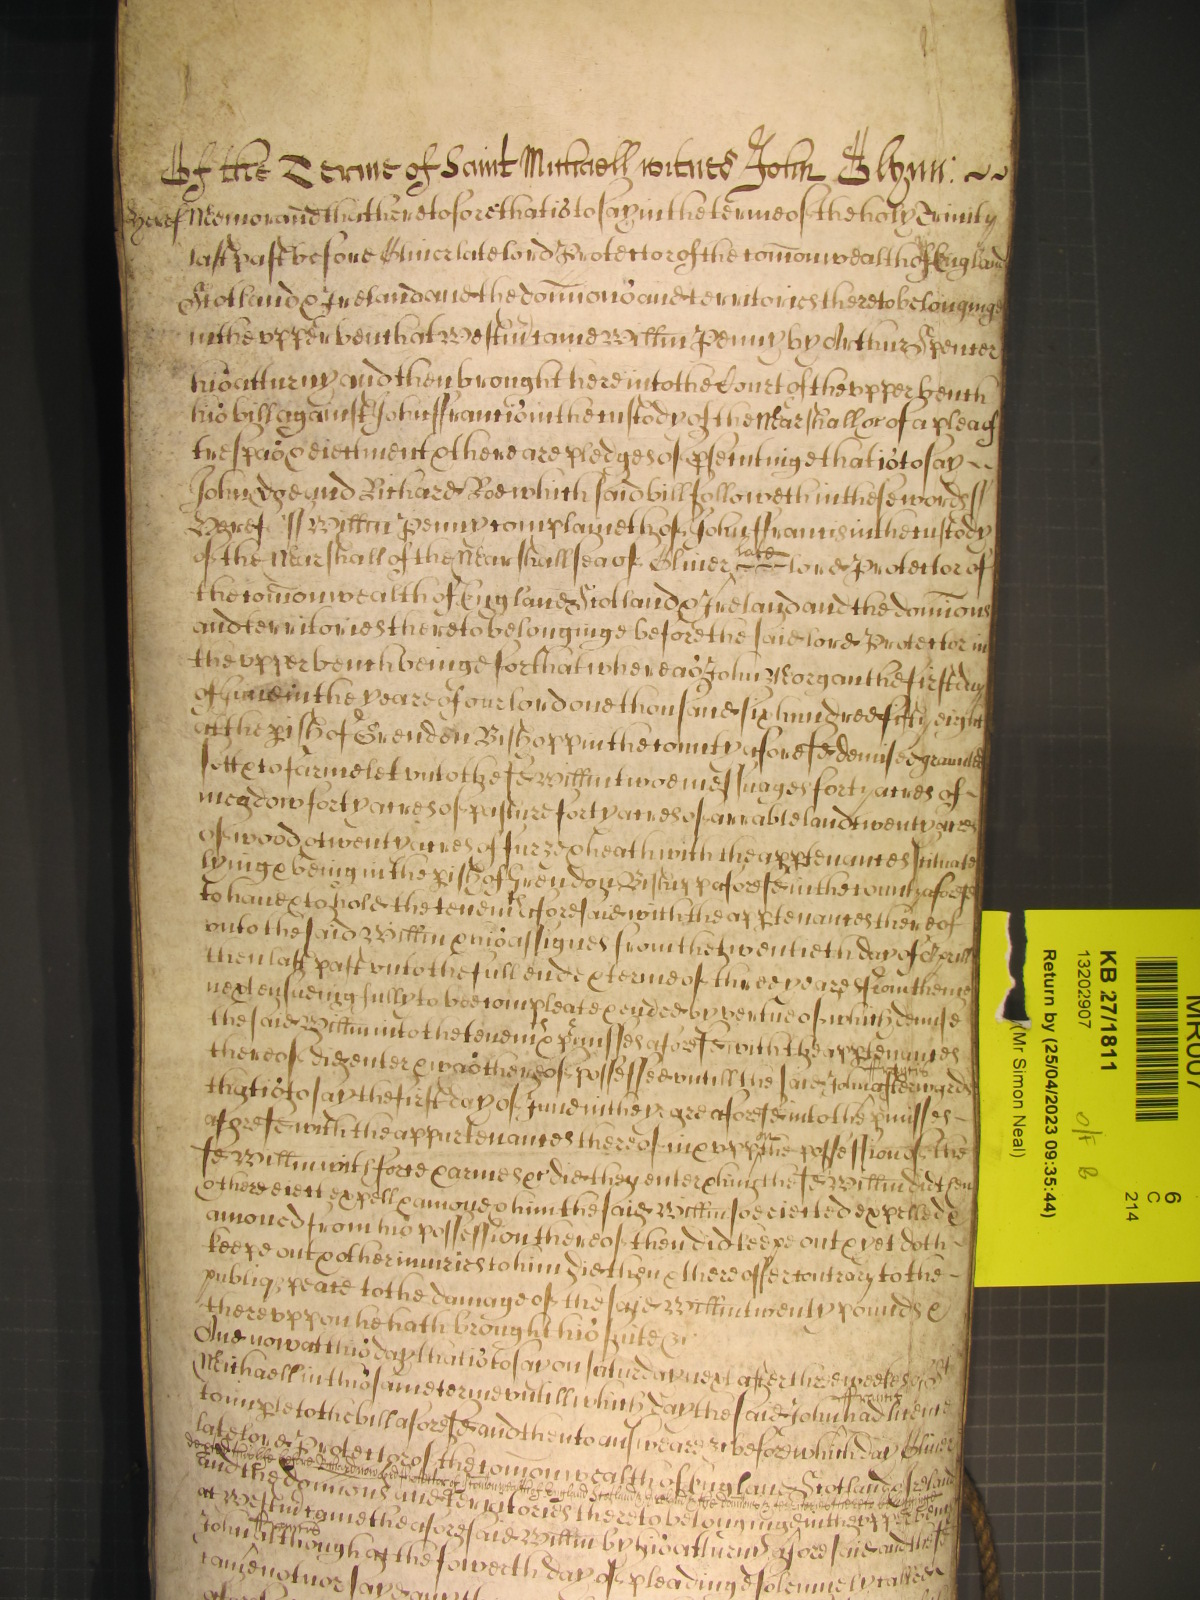 Of the Terme of Saint Michaell witnes John Glynn:
Heref Memorand that heretofore that is to say in the terme of the holy Trinity
last past before Oliver late lord Protector of the com̄onwealth of England
Scotland & Ireland and the domīons and territories thereto belonginge
in the vpper bench at Westm̄ came Willm̄ Penny by Arthur Spencer
his atturny and then brought here into the Court of the vpper bench
his bill against John Ffrancis in the custody of the Marshall &c of a plea of
trespas & eiectment & there are pledges of p̱secutinge that is to say
John Doe and Richard Roe which said bill followeth in these words ss
Heref ss Willm̄ Penny complaineth of John Ffrancis in the custody
of the Marshall of the Marshallsea of Oliver late lord Protector of
the com̄onwealth of England Scotland & Ireland and the domīons
and territories thereto belonginge before the said lord Protector in
the vpper bench beinge for that whereas John Morgan the first day
of June in the yeare of our lord one thousand six hundred fifty eight
at the p̱ish of Grenden Bishopp in the county aforesd demised graunted
sett & to farme let vnto the sd Willm̄ two messuages forty acres of
meadow forty acres of pasture forty acres of arrable land twenty acres
of wood & twenty acres of furze & heath with the apptenances scituate
lying & being in the p̱ish of Grendon Bishupp aforesd in the county aforesd
to haue & to hold the tenemts aforesaid with the apptenances thereof
vnto the said Willm̄ & his assignes from the twentieth day of Aprill
then last past vnto the full end & terme of three yeares from thence
next ensueing fully to bee compleate & ended by vertue of which demise
the said Willm̄ into the tenemts & p̱misses aforesd with the apptenances
thereof did enter & was thereof possessed vntill the said John Ffrancis afterwards
that is to say the first day of June in the yeare aforesd into the p̱misses
aforesd with the appurtenances thereof in & vppon the possession of the
sd Willm̄ with force & armes &c did they enter & him the sd Willm̄ did then
& there eiect expell & amove & him the said Willm̄ soe eiected expelled &
amoued from his possession thereof then did keepe out & yet doth
keepe out & other iniuries to him did then & there offer contrary to the
publiq̨ peace to the damage of the said Willm̄ twenty pounds &
therevppon he hath brought his suite &c
And now at this day that is to say on saturday next after three weekes of St
Michaell in this same terme vntill which day the said John Ffrancis had licence
to imple to the bill aforesd and then to answeare &c before which day Oliver
late lord Protector of the com̄onwealth of England Scotland & Ireland
and the domīons and territories thereto belonginge in the vpper bench
at Westm̄ came the aforesaid Willm̄ by his atturny aforesaid and the sd
John Ffrancis although at the fowerth day of pleadinge solemnely called
came not nor sayd any
KB 27/1811
13202907
Return by (25/04/2023 09:35:44)
(Mr Simon Neal)
6
C
214